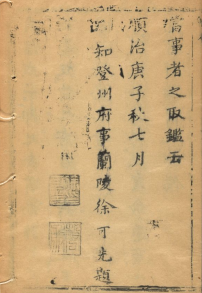 當事者之取鑑云
順治庚子秋七月
知登州府事蘭陵徐可先題